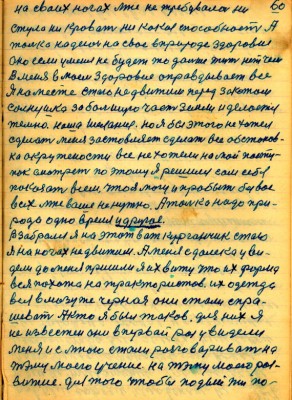 на своих ногах мне не требувался ни 60
стула ни кровати ни какая способность А
только надеюсь на свое в природе здоровие
Оно сели у меня не будет то дальше жить
В меня в моем здоровие оправдывает все
Я на месте стою недвижим перед закатом
солнышка за большую часть земли и делается
темно. наша но я бы этого не хотел
сделать меня заставляет сделать все обстанов-
ка окружности все не хотели на мой посту-
пок смотреть поэтому я решился сам себя
показать всем, что я могу и пробыть бы вое
всех мне ваше не нужно. А только надо при-
рода одно время и другое.
Взабрался я на этот ват курганчик стою
я на ногах недвижим. А меня с далека уви-
дели до меня пришли я их вижу это их форма
вся похожа на трактористов. их одежда
вся в мазуте черная они стали спра-
шевать А кто я был таков. для них я
не известен они в первый раз увидели
меня и с мною стали разговаривать на
тему моего учение. на тему моего раз-
витие. для того чтобы людям жи по-